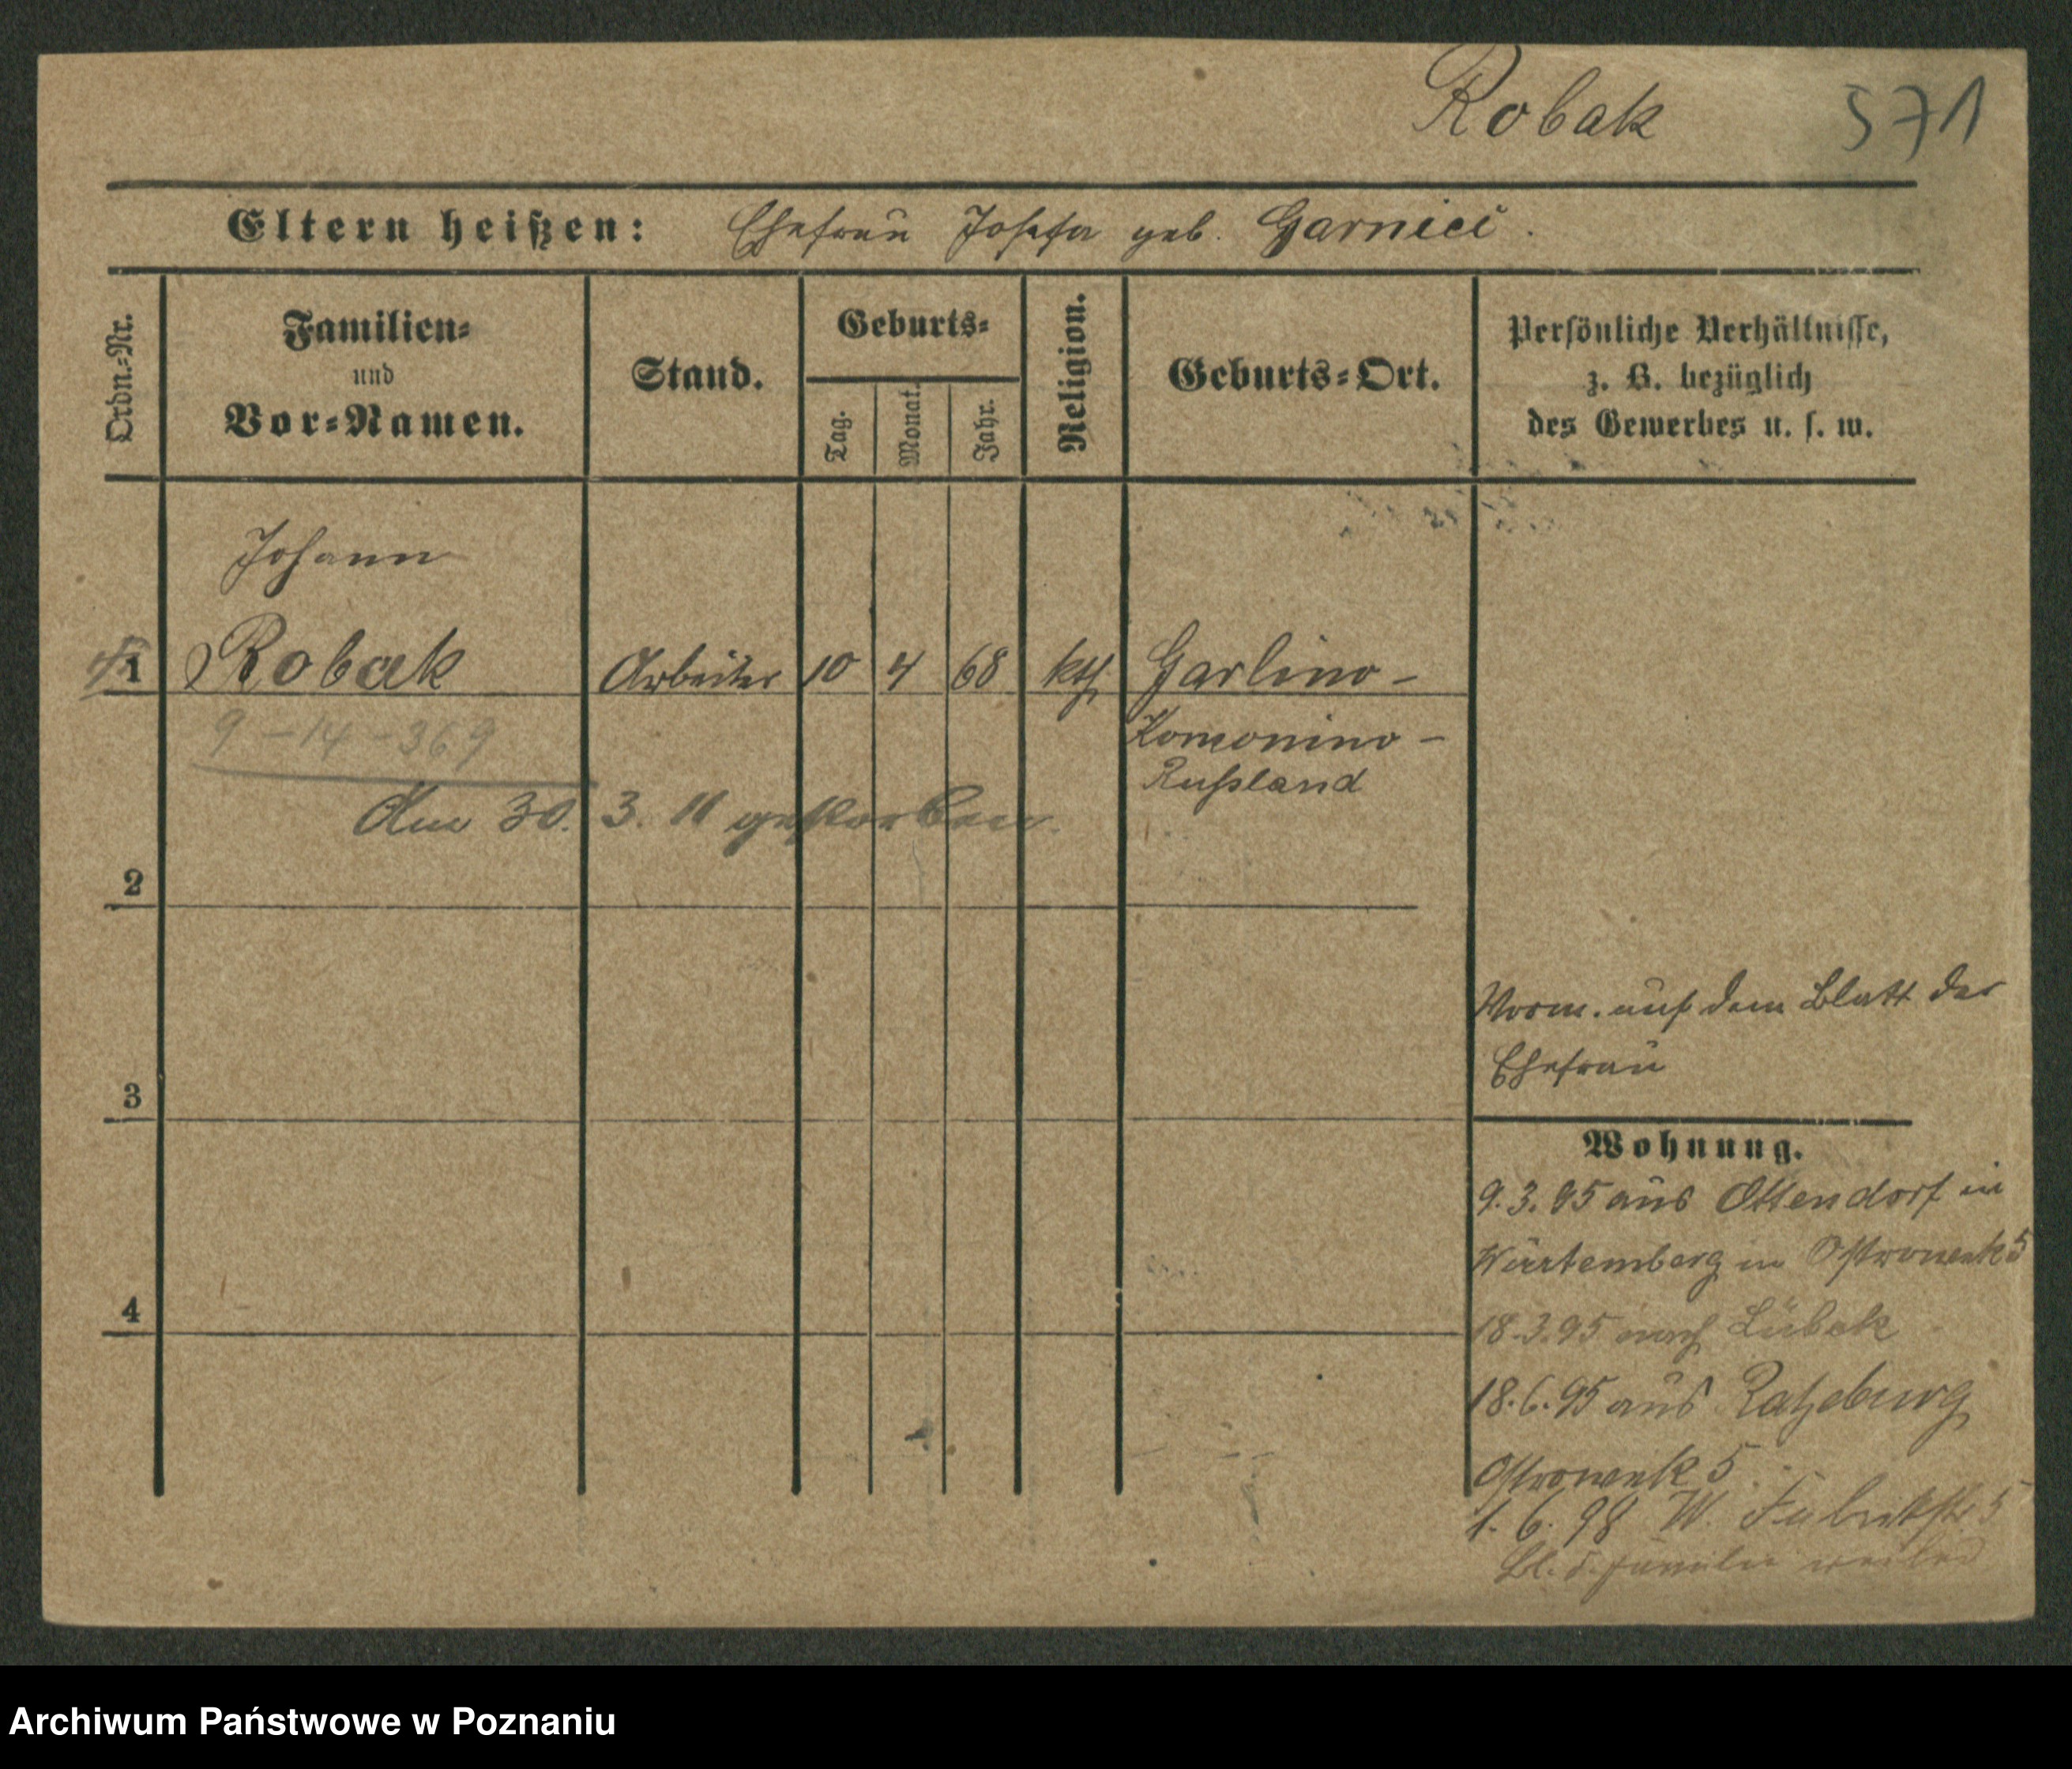 Robak 571
Eltern heißen: Ehefrau Josefa geb. Garnici.
Ordn.-Nr.
Familien-
und
Vor-Namen.
Stand.
Geburts-
Tag.
Monat.
Jahr.
Religion.
Geburts-Ort.
Persönliche Verhältnisse,
z. B. bezüglich
des Gewerbes u. s. w.
Johann
1 Robak Arbeiter 10 4 68 kth Garlino-
9-14-369
Komonino-
Rußland
Am 30. 3. 11 gestorben.
2
3
4
Verm. auf dem Blatt der
Ehefrau
Wohnung.
9.3.95 aus Ottendorf in
Würtemberg in Ostrowek 5
18.3.95 nach Lübek
18.6.95 aus Ratzeburg
Ostrowek 5
1. 6. 98 W. 5
Bl. d. Familie
Archiwum Państwowe w Poznaniu